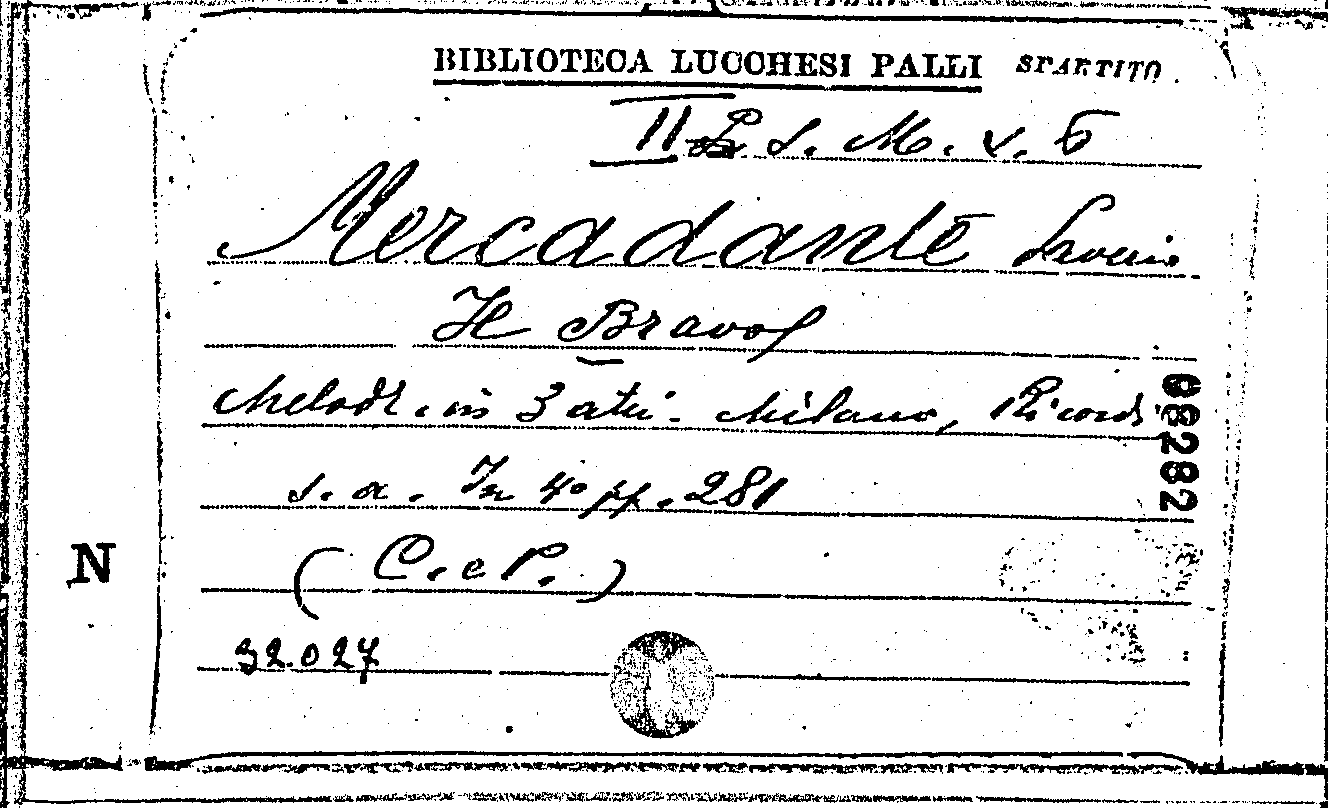 BIBLIOTECA LUCCHESI PALLI SPARTITO
II S. M. V. 6
Mercadante Saverio
Il Bravo
Melodr. in 3 atti. Milano, Ricordi
s. a. In 4º pp. 281
(C. e P.)
32.027
N
08282